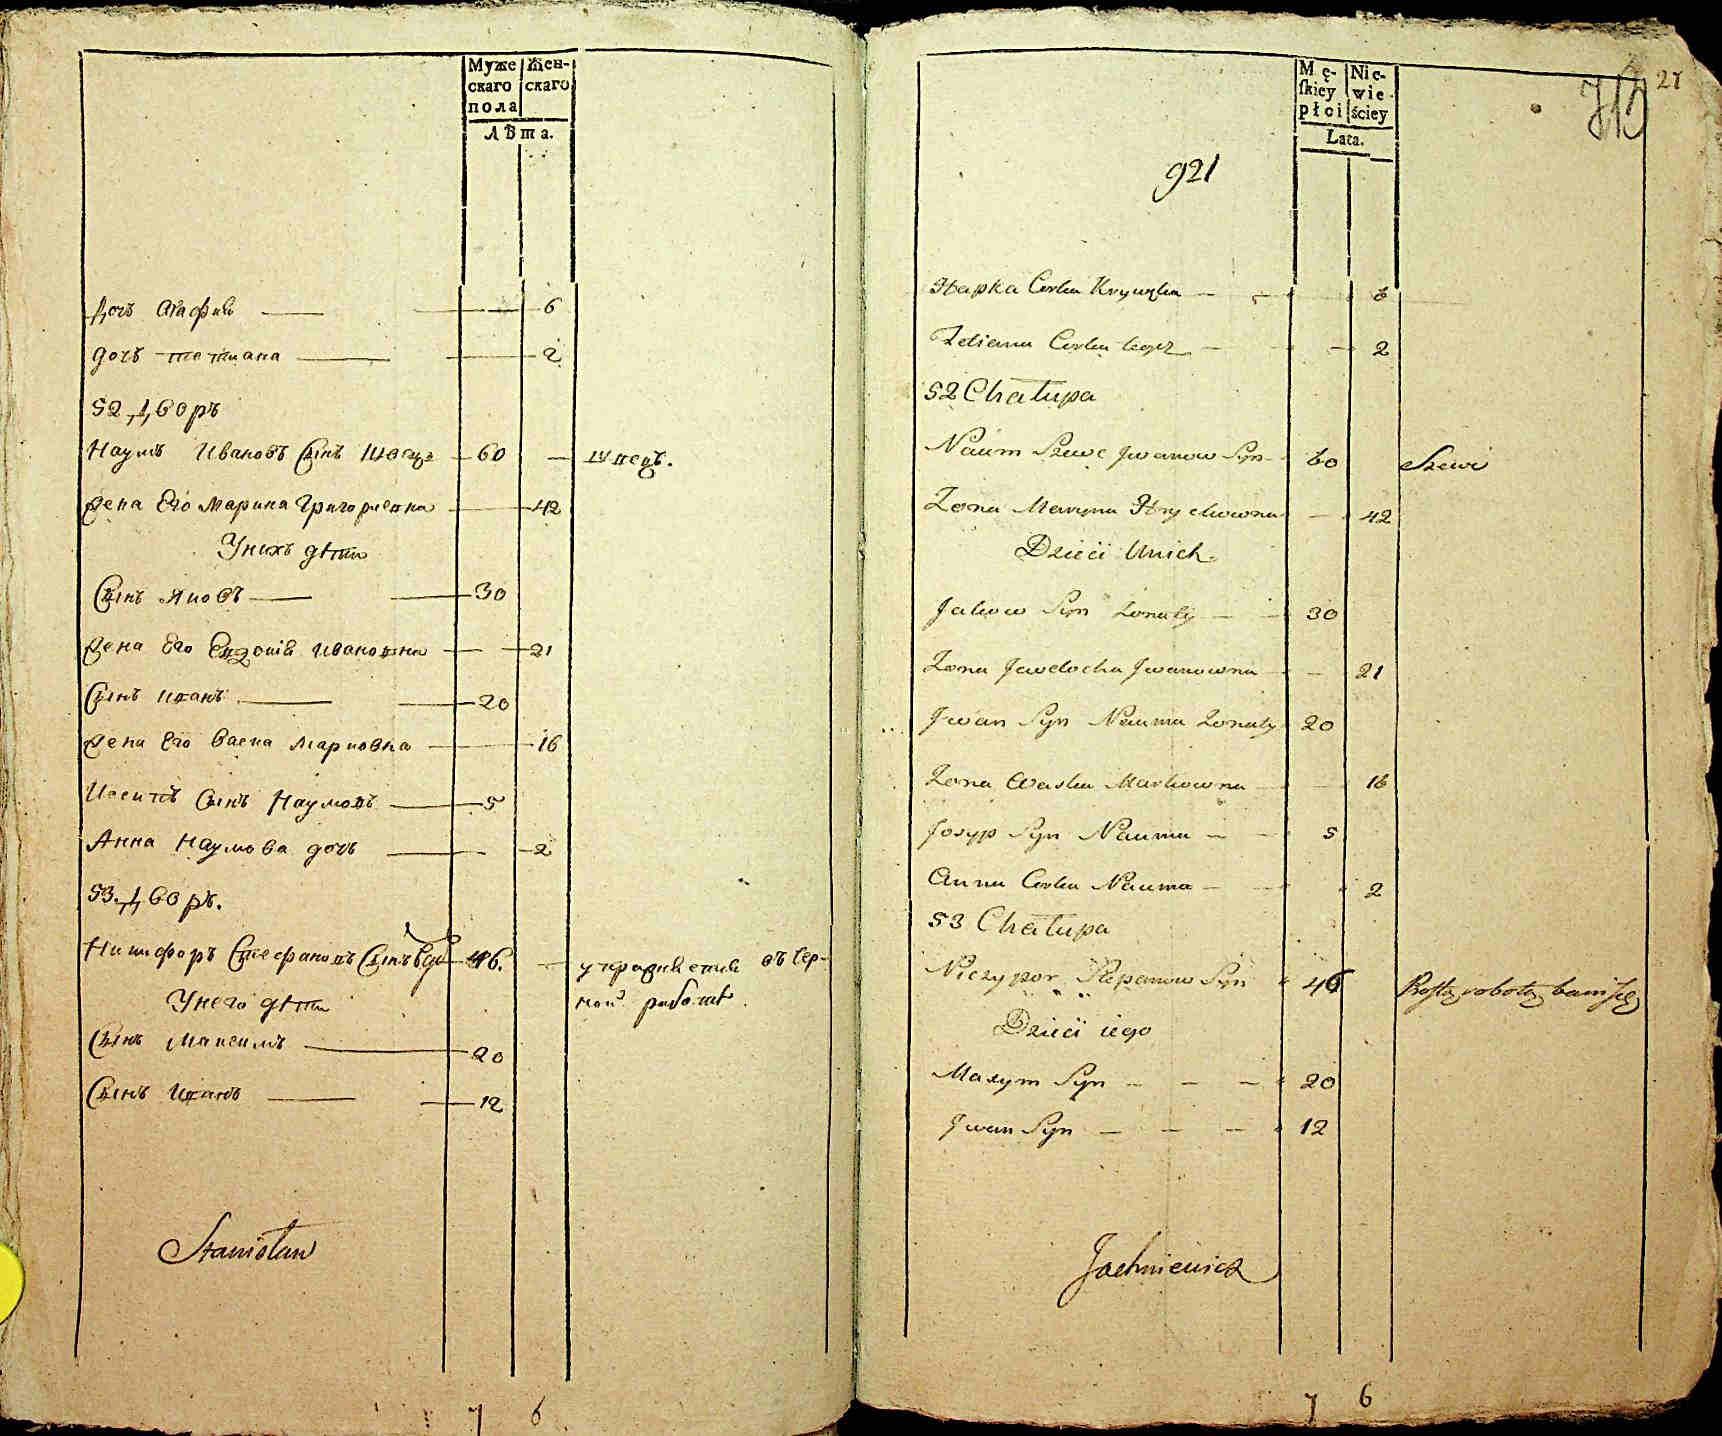 Муже Жен-
скаго скаго
пола
Лѣта.
Дочъ Агафия 6
дочъ тетиана 2
52 Дворъ
Наумъ Ивановъ Сынъ Швецъ 60 швецъ.
жена Его Марина Григориевна 42
У нихъ дѣти
Сынъ Яковъ 30
жена Его Евдокiя Ивановна 21
Сынъ Иванъ 20
жена Его Васка Марковна 16
Иосипъ Сынъ Наумовъ 5
Анна Наумова дочь 2
53 Дворъ.
Ничифоръ Стефановъ Сынъ вдо 46. упражняется въ чер-
У него дѣти ной работѣ
Сынъ Максимъ 20
Сынъ Иванъ 12
Stanisław
7 6
Mę- Nie-
ſkiey wie-
płci ściey
Lata.
21
921
Hapka Corka Kryuzka 6
Tetiana Corka tegoz 2
52 Chałupa
Naum Szewc Jwanow Syn 60 Szewc
Zona Maryna Hrychowna 42
Dzieci Unich
Jakow Syn Zonaty 30
Zona Jewdocha Jwanowna 21
Jwan Syn Nauma Zonaty 20
Zona Waska Markowna 16
Josyp Syn Nauma 5
Anna Corka Nauma 2
53 Chałupa
Niczypor Stepanow Syn 46 Prostą robotą bawi się
Dzieci iego
Maxym Syn 20
Jwan Syn 12
Jachniewicz
7 6